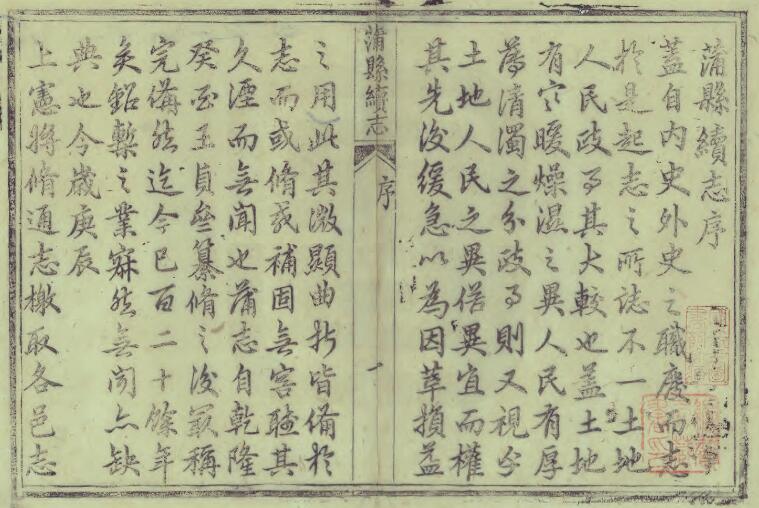 蒲縣續志序
蓋自内史外史之職廢而志
於是起志之所誌不一土地
人民政事其大較也蓋土地
有寒暖燥濕之異人民有厚
薄清濁之分政事則又視乎
土地人民之異俗異宜而權
其先後緩急以為因革損益
蒲縣續志
序
一
之用此其微顯曲折皆備於
志而或脩或補固無容聽其
久湮而無聞也蒲志自乾隆
癸酉王貞叄纂脩之後最稱
完備然迄今已百二十餘年
矣鉛槧之業寂然無聞亦缺
典也今歲庚辰
上憲將脩通志檄取各邑志